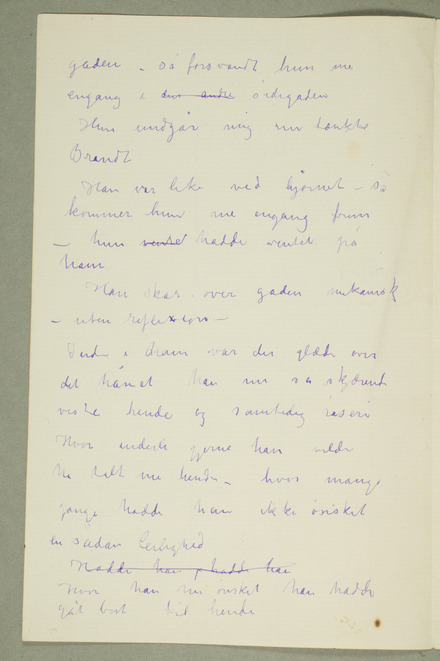 gaden – så forsvandt hun me
engang i den andre sidegaden
Hun undgår mig nu tænkte
Brandt
Han var like ved hjørnet – så
kommer hun me engang frem
– hun vented hadde ventet på
ham
Han skar over gaden mekanisk
– uten reflexion –
Inde i ham var der glæde over
det hånet han nu så skjærende
viste hende og samtidig raseri
Hvor inderli gjerne han vilde
ha talt me hende – hvor mange
gange hadde han ikke ønsket
en sådan Leilighed
Hadde han, hadde han
Hvor han nu ønsket han hadde
gåt bort til hende